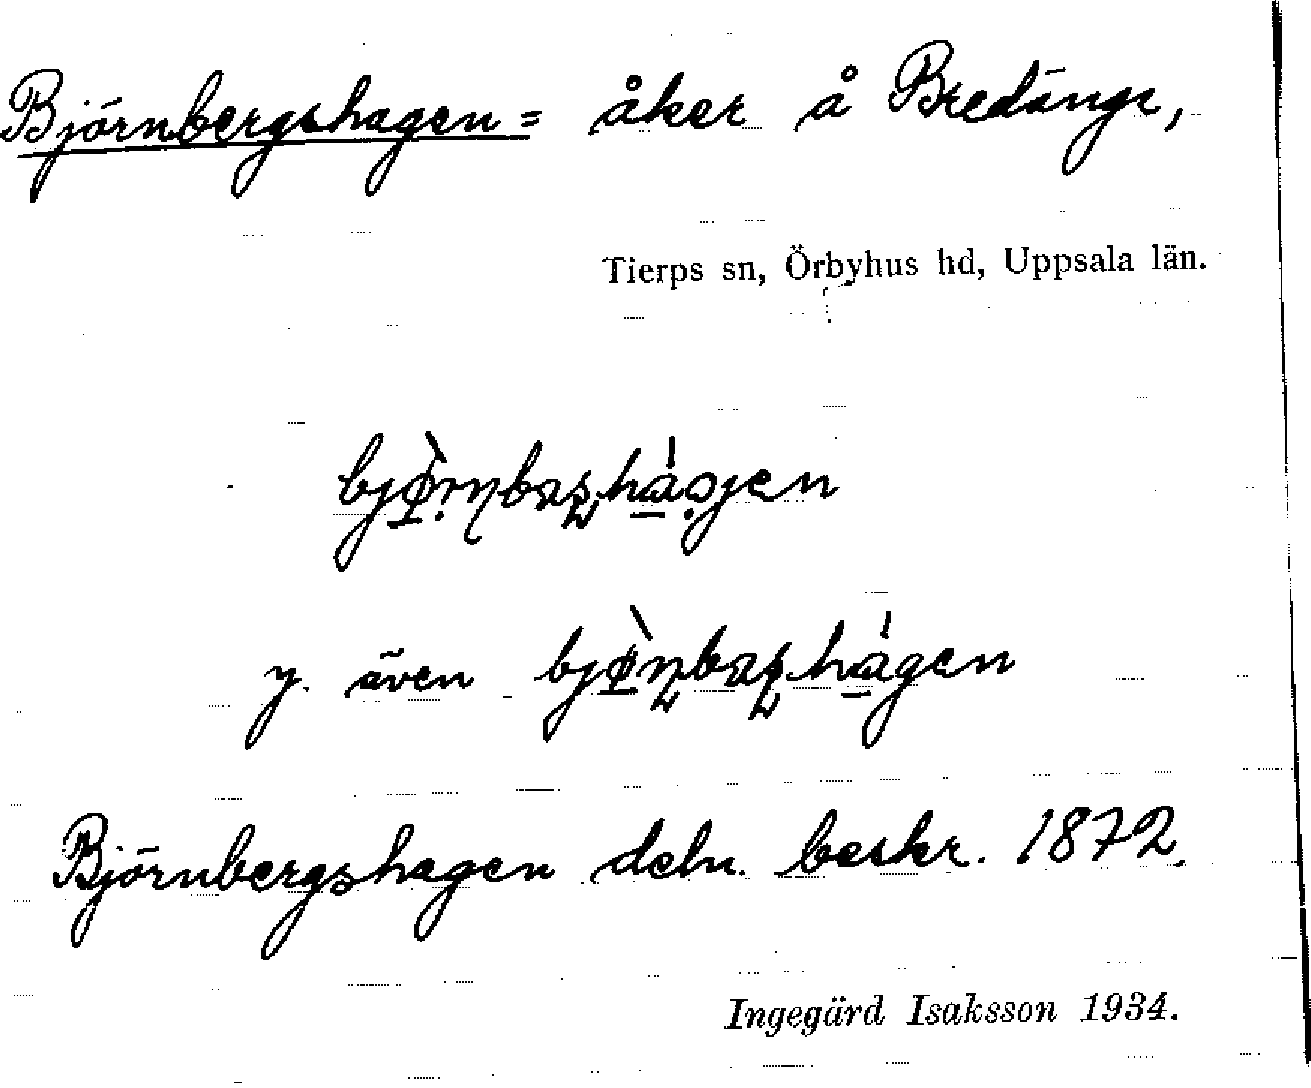 Björnbergshagen = åker å Bredänge,
Tierps sn, Örbyhus hd, Uppsala län.
y. även
Björnbergshagen deln. beskr. 1872.
Ingegärd Isaksson 1934.